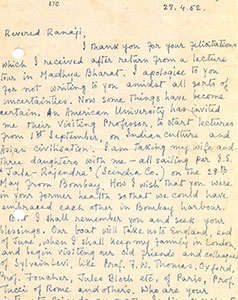 27.4.52.
Revered Ranaji,
I thank you for your felicitations
which I received after return from a lecture
tour in Madhya Bharat. I apologise to you
for not writing to you amidst all sorts of
uncertainties. Now some things have become
certain. An American University has invited
me their Visiting Professor, to start lectures
from 1st September, on Indian culture and
Asian civilisation. I am taking my wife and
three daughters with me – all sailing per S.S.
"Jala-Rajendra" (Scindia Co.) on the 29th
May from Bombay. How I wish that you were
in your former health so that we could have
embraced each other in Bombay harbour.
But I shall remember you and seek your
blessings. Our boat will take us to England, end
of June, when I shall keep my family in London,
and begin visiting our old friends and colleagues
of Sylvain Levi. like Prof. F. W. Thomas, Oxford,
Prof. Foucher, Jules Bloch etc, of Paris, Prof.
Tucci of Rome and others. Who are your